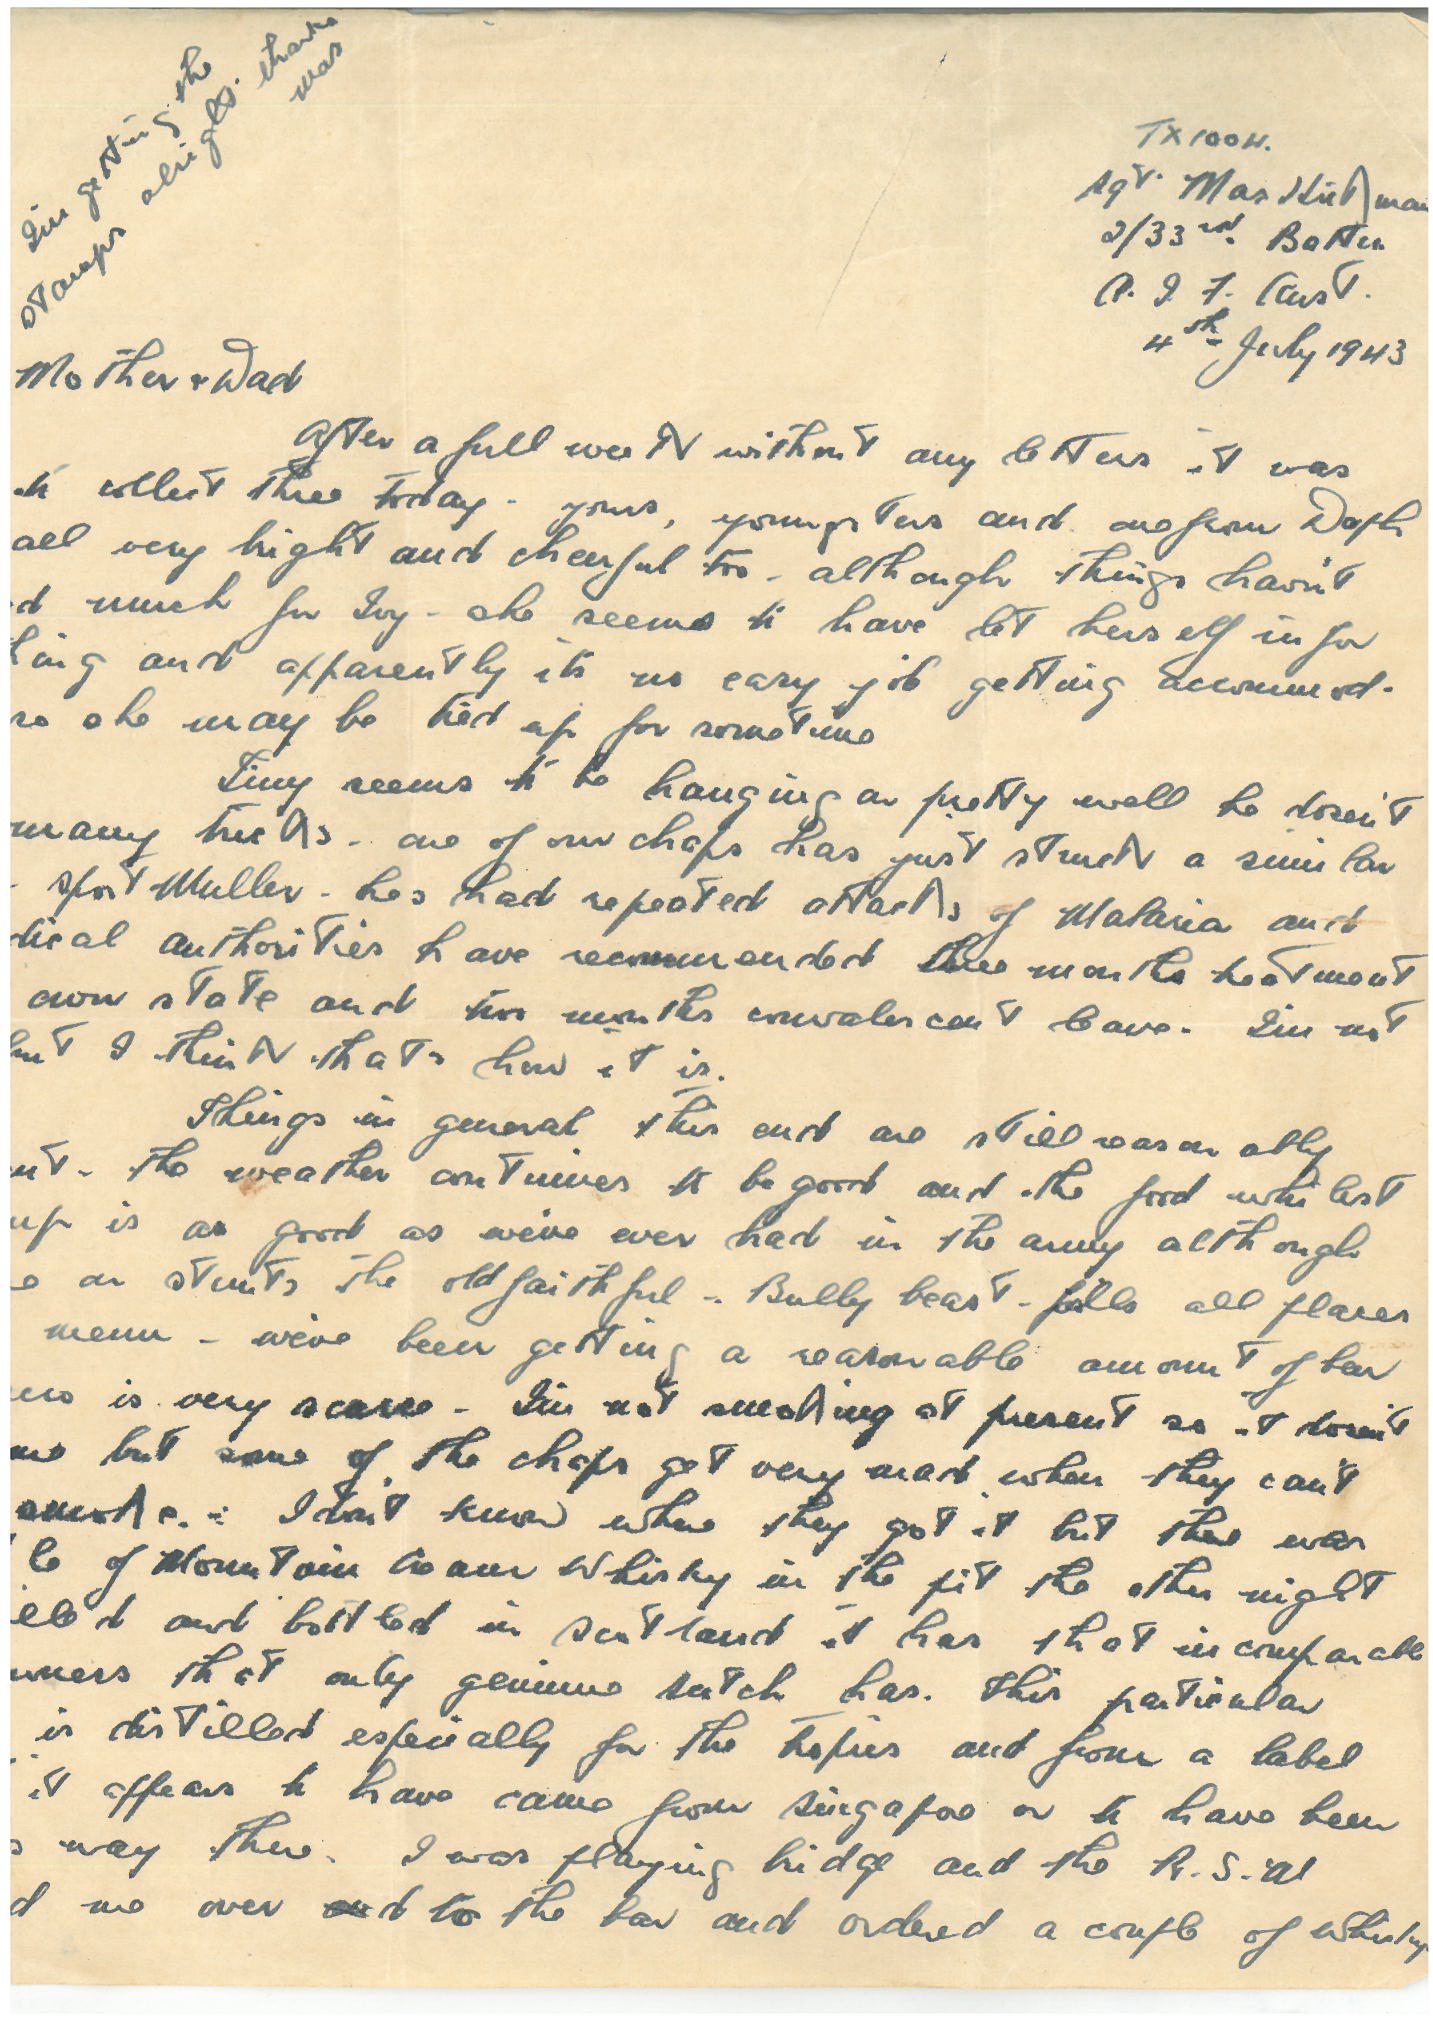 I'm getting the
stamps alright. thanks
mar
TX1004.
Sgt. Max Hickman
2/33rd. Battn
A. I. F. Aust.
4th July 1943
Mother & Dad
After a full week without any letters it was
to collect three today - yours, youngsters and one from Daph
all very bright and cheerful too - although things havn't
much for Ivy - she seems to have let herself in for
and apparently its no easy job getting accommod-
so she may be tied up for sometime
Tiny seems to be hanging on pretty well he dosen't
many tricks - one of our chaps has just struck a similar
spot Muller - hes had repeated attacks of Malaria and
authorities have recommended three months treatment
own state and two months convalescent leave. I'm not
but I think thats how it is.
Things in general this end are still reasonably
the weather continues to be good and the food whilest
is as good as weive ever had in the army although
on stunts the old faithful - Bully beast - fills all places
menu - weive been getting a reasonable amount of beer
is very scarce - I'm not smoking at present so it dosen't
me but some of the chaps get very mad when they can't
smoke. - I don't know where they got it but there was
of Mountain Cream Whisky in the pit the other night
and bottled in Scotland it has that incomparable
that only genuine scotch has. This particular
is distilled especially for the tropics and from a label
it appears to have came from Singapore or to have been
way there. I was playing bridge and the R.S.M
me over to the bar and ordered a couple of whisky